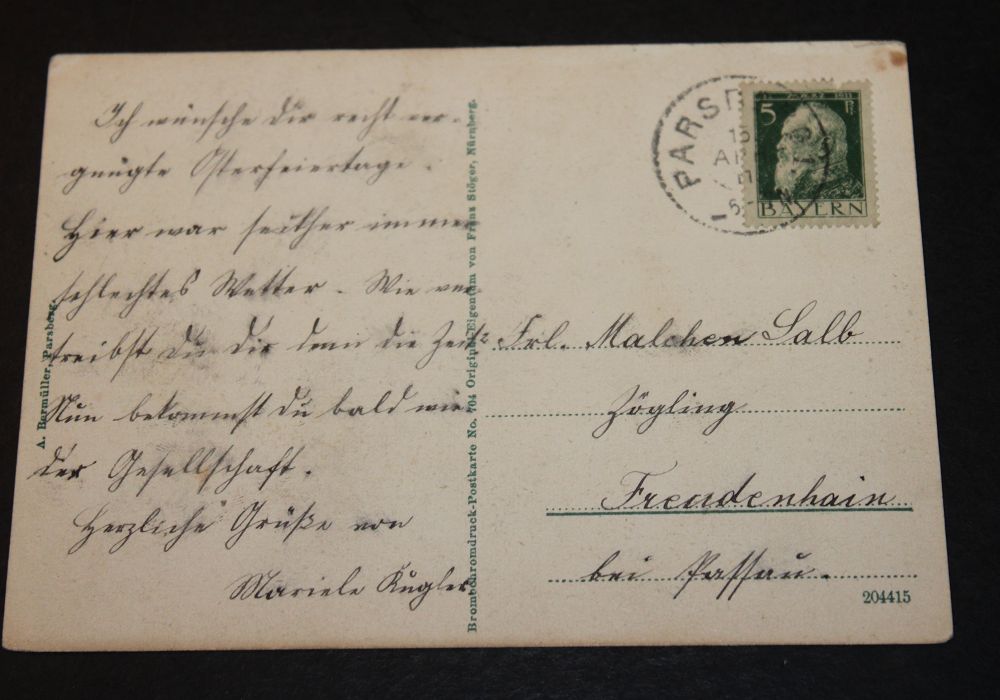 Ich wünsche Dir recht ver-
gnügte Osterfeiertage.
Hier war seither immer
schlechtes Wetter. Wie ver-
treibst Du Dir denn die Zeit?
Nun bekommst Du bald wie-
der Gesellschaft.
Herzliche Grüße von
Mariele Kugler
A. Bermüller, Parsberg.
Bromochromdruck-Postkarte No. 704 Original-Eigentum von Franz Stöger, Nürnberg.
PARSB
15
5
1911
BAYERN
Frl. Malchen Salb
Zögling
Freudenhain
bei Passau.
204415